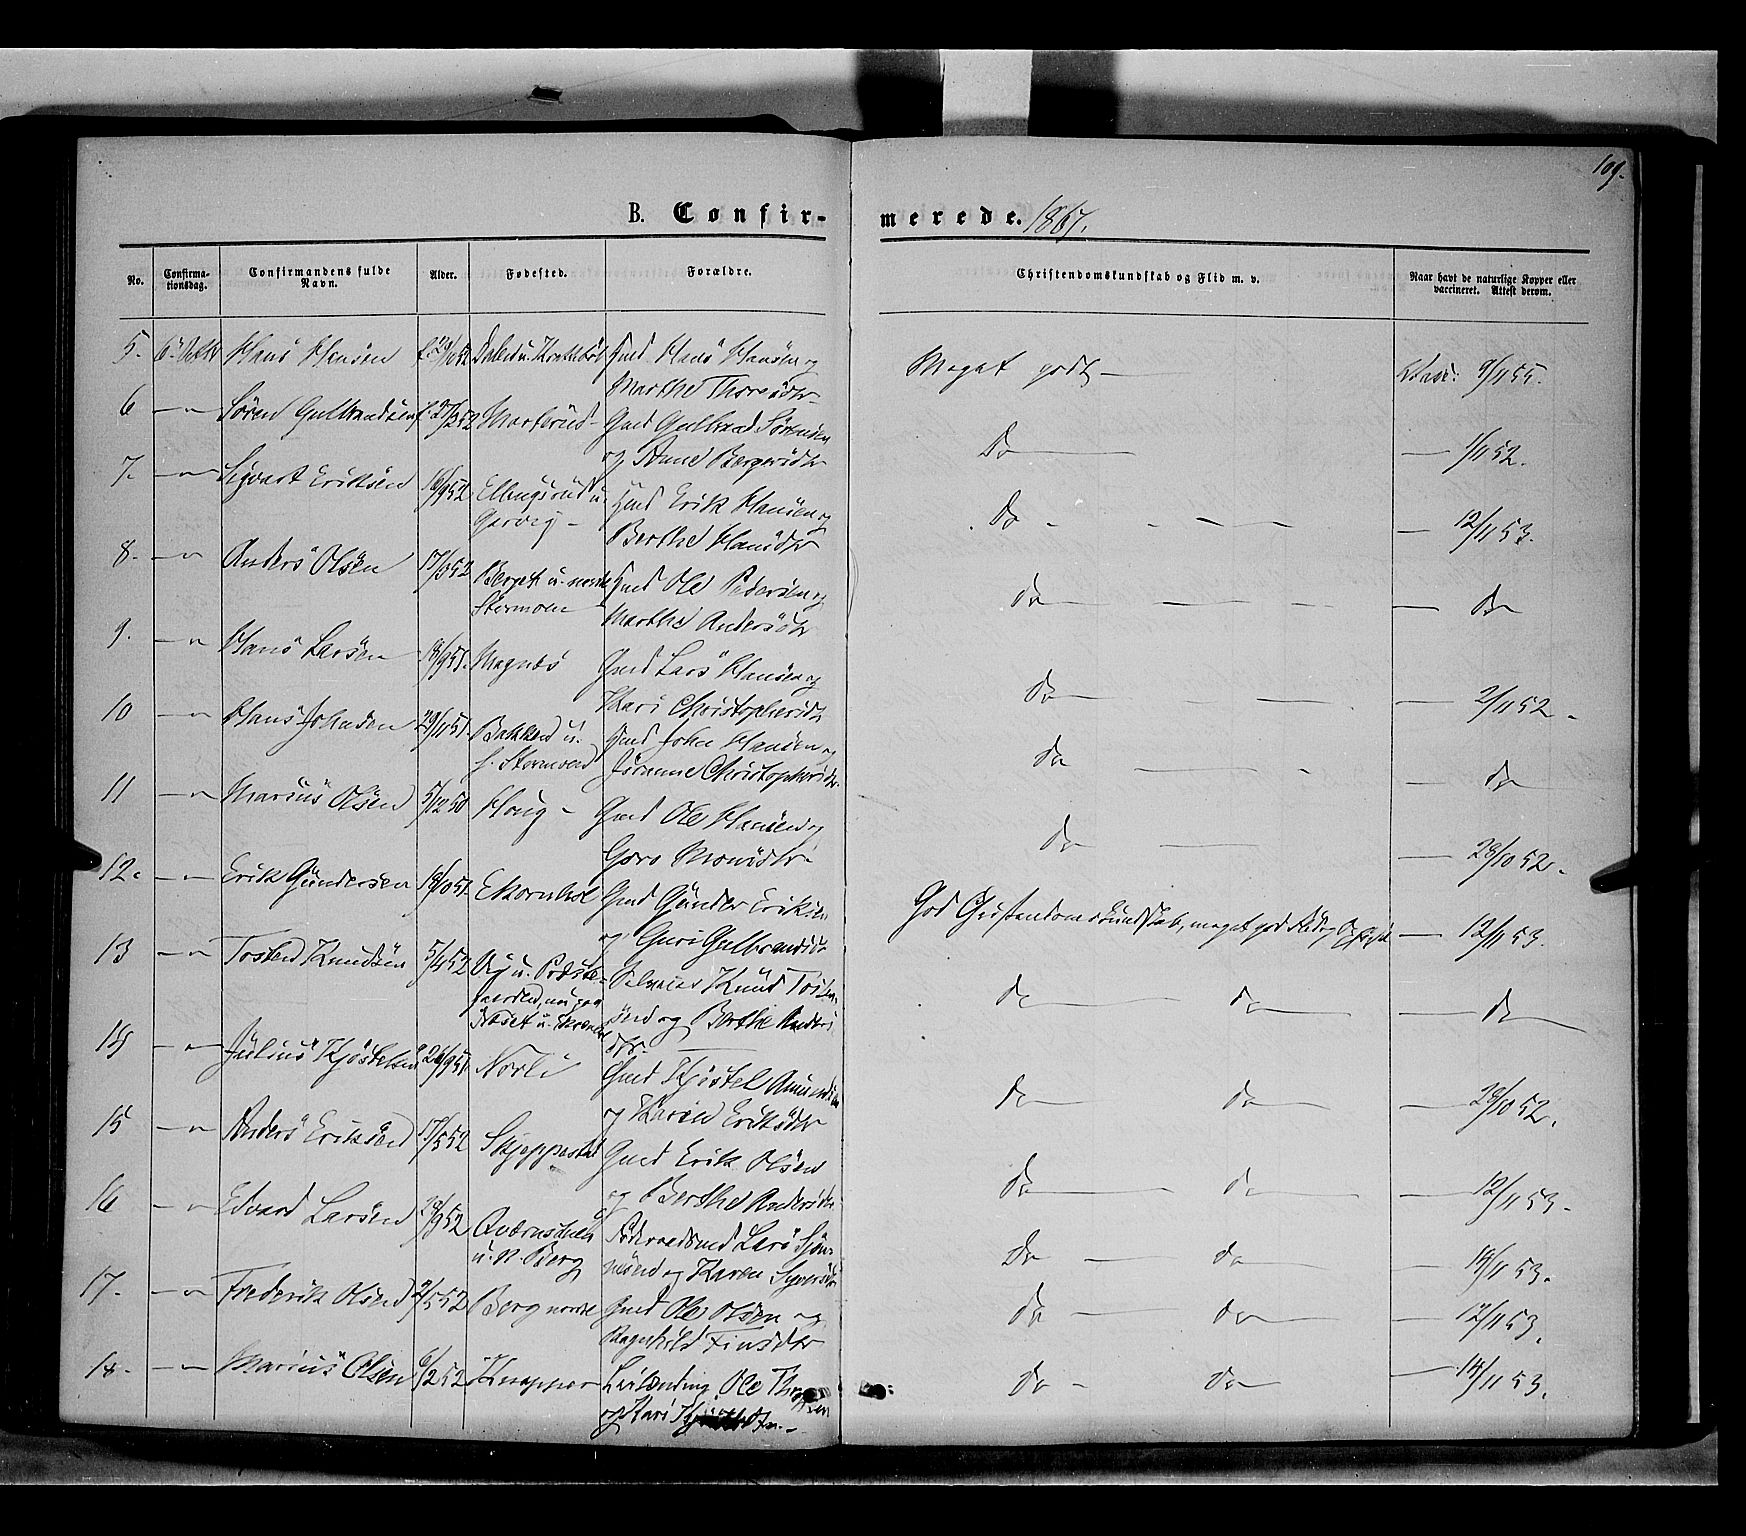 109.
B. Confir-
merede. 1867.
No.
Confirma-
tionsdag.
Confirmandens fulde
Navn.
Alder.
Fødested.
Forældre.
Christendomskundskab og Flid m. v.
Naar havt de naturlige Kopper eller
vaccineret. Attest derom.
5. Hans Hansen Gmd Hans Hansen og
Marthe Thoresdtr
Meget godt — Vacc: 9/11 55.
6 —"— Søren Gulbrandsen Gmd Gulbrand Sørensen
og Anne
Do — 1/11 52.
7. —"— Sigvart Eriksen 16/9 52 Hmd Erik Hansen og
Berthe Hansdtr
Do - — 12/11 53.
8. —"— Anders Olsen 17/3 52 Berget u. nordre
Stormoen
Hmd Ole Pedersen og
Marthe Andersdtr
do — do
9. —"— Hans Larsen 18/9 51. Magnæs Gmd Lars Hansen og
Kari Christophersdtr
do — 2/11 52.
10 —"— Hans Johnsen 29/11 51. Bakken u.
Gmd John Hansen og
Christophersdtr.
do — do
11 —"— Marius Olsen 5/12 50 Houg - Gmd Ole Hansen og
Goro
do — 28/10 52.
12. —"— Erik Gundersen 18/10 51. Ekornhol Gmd Gunder Eriksen
og Guri Gulbrandsdtr
God Christendomskundskab, meget god Flid og Opførsel — 12/11 53.
13 —"— Tosten Knudsen 5/4 52 Vig u. Præste-
gaarden, nu paa
Næset u.
Selveier Knud Tosten-
sen og Berthe Anders
dtr.
do — do — do
14 —"— Julius Kjøstelsen 26/9 51. Norli Gmd Kjøstel Amundsen
og Karen Eriksdtr
do — do — 28/10 52.
15 —"— Anders Eriksen 17/5 52 Skjeppestad Gmd Erik Olsen
og Berthe Andersdtr
do — do — 12/11 53.
16 —"— Edvard Larsen 28/9 52 Qværnstuen
u. N. Berg
Føderaadsmd Lars Syver-
og Karen Syversdtr
do — do — 14/11 53.
17. —"— Frederik Olsen 2/5 52 Berg nordre Gmd Ole Olsen og
Ragnhild Finsdtr
do — do — 12/11 53.
18. —"— Marius Olsen 6/2 52 Knapper Leilænding Ole
og Kari
do - do — 14/11 53.